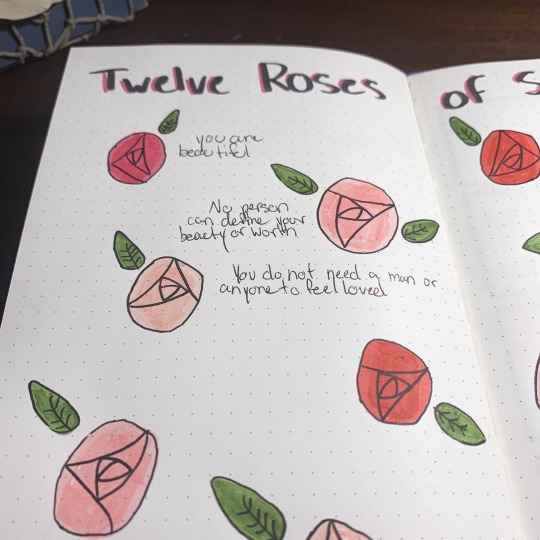 Twelve Roses
of S
you are
beautiful
No person
can define your
beauty or worth
You do not need a man or
anyone to feel loved